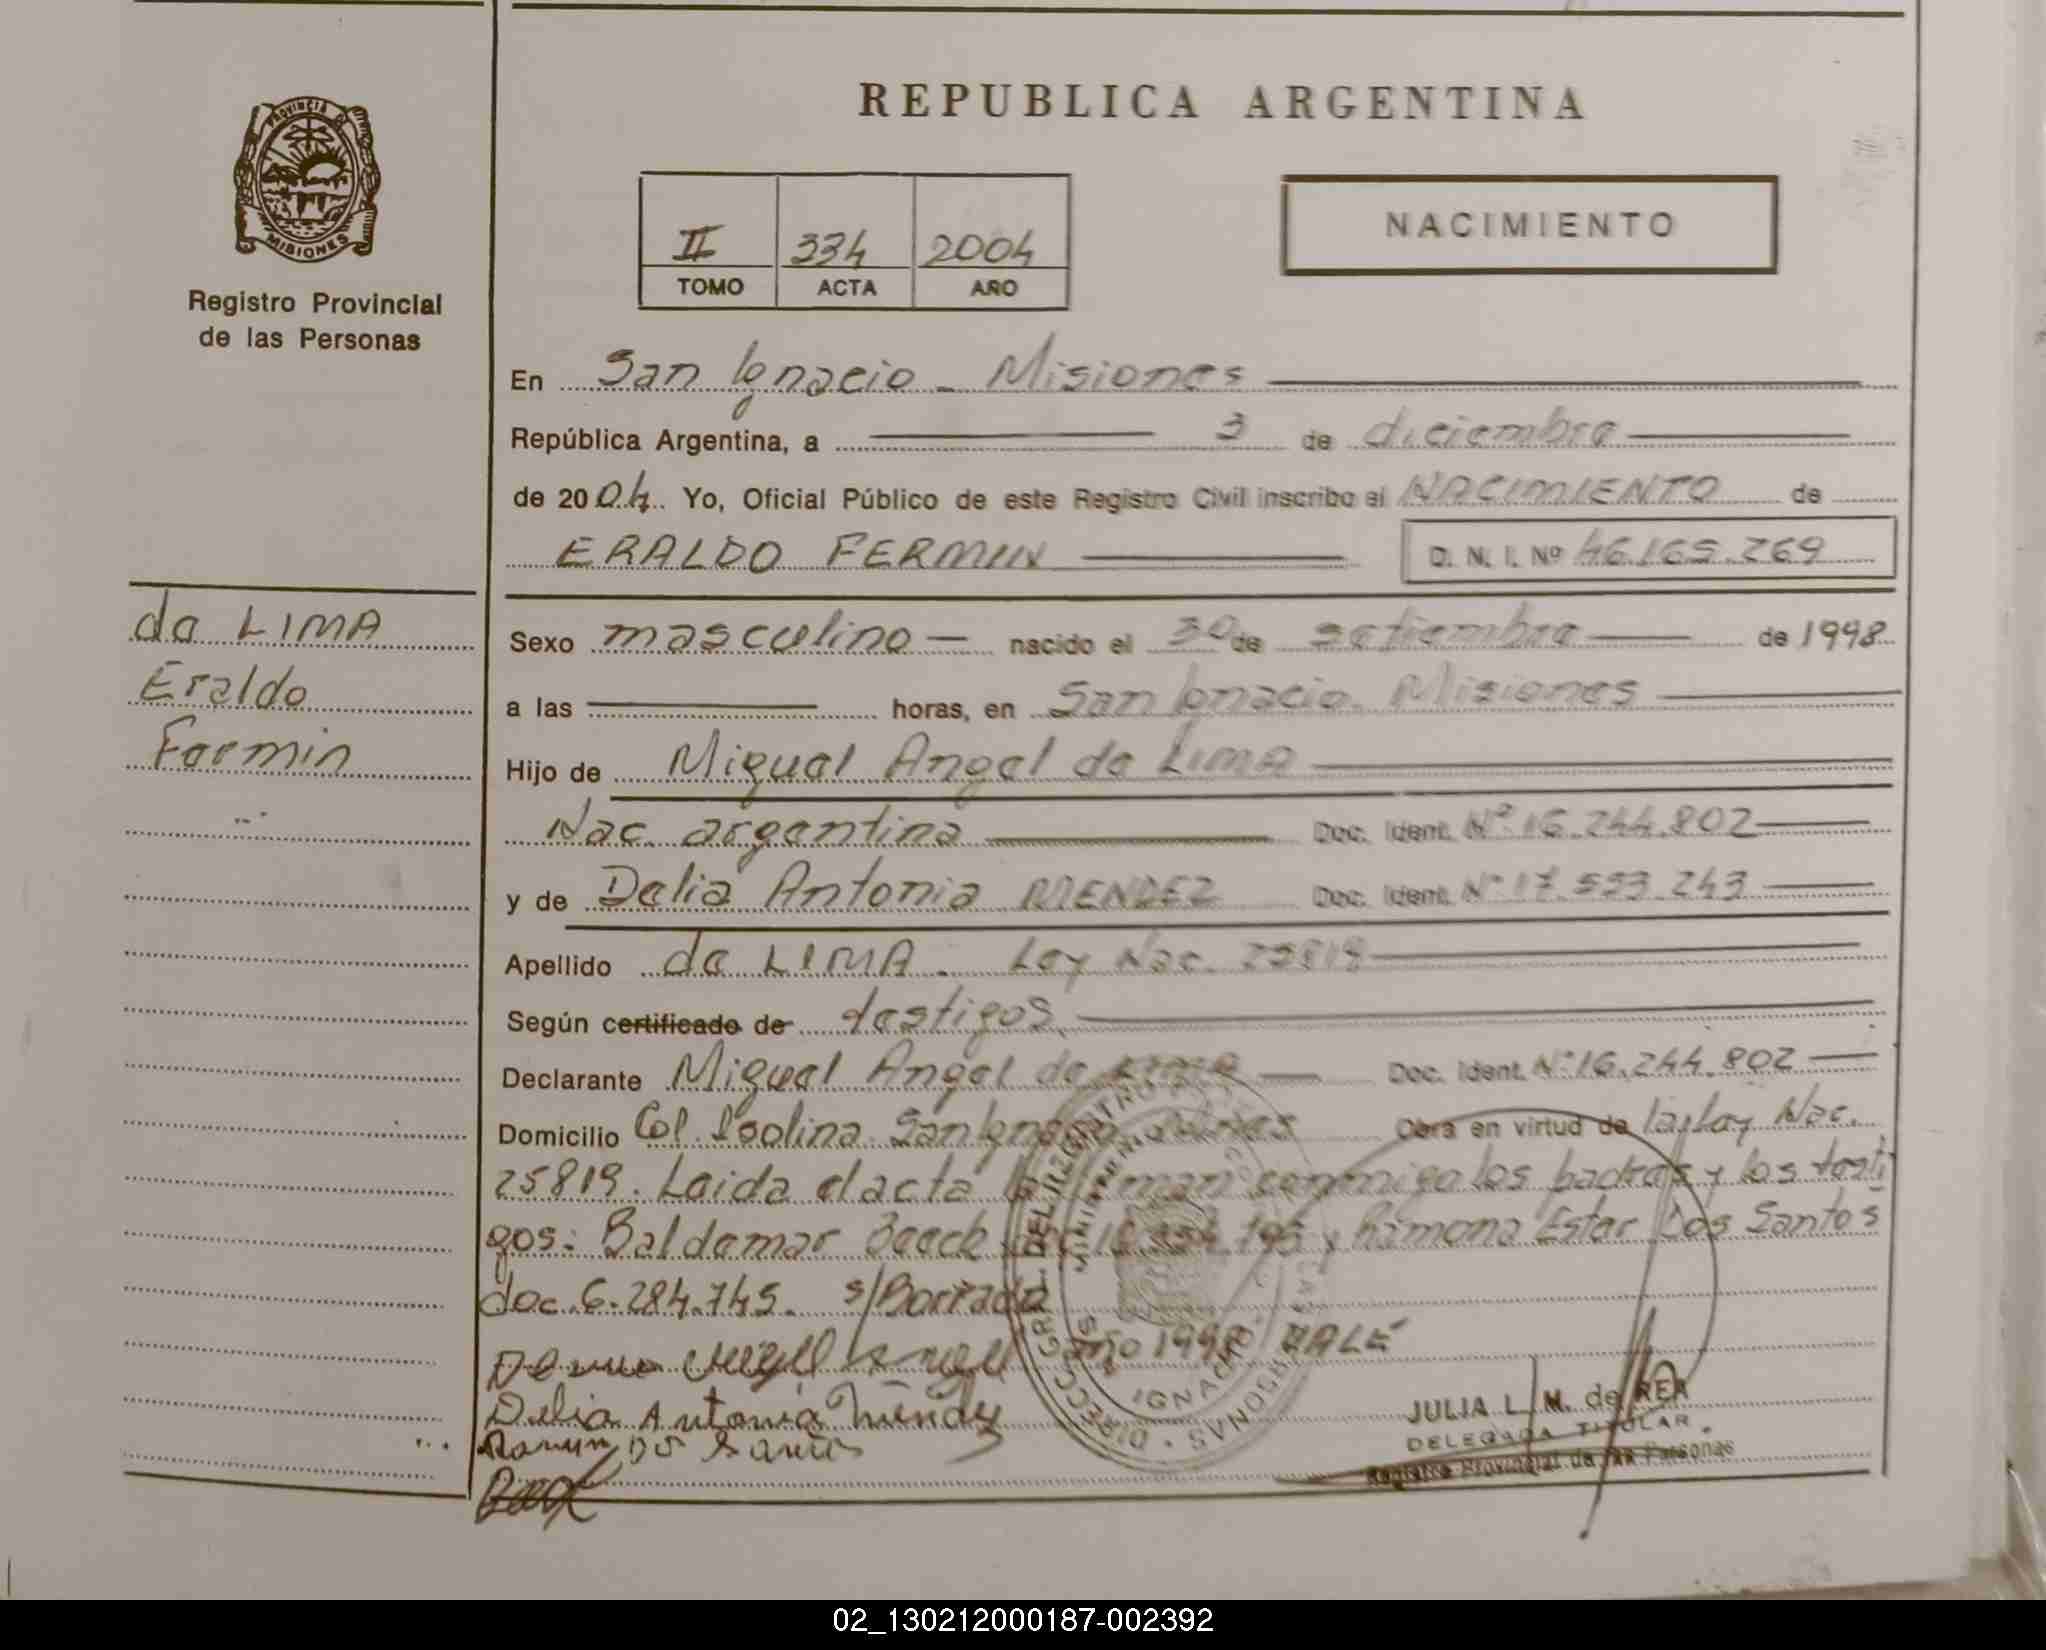 REPUBLICA ARGENTINA
PROVINCIA DE MISIONES
Registro Provincial
de las Personas
II 334 2004
TOMO ACTA AÑO
NACIMIENTO
En San Ignacio - Misiones
República Argentina, a 3 de diciembre
de 2004. Yo, Oficial Público de este Registro Civil inscribo el NACIMIENTO de
ERALDO FERMIN D. N. I. Nº 46.165.269
de LIMA
Eraldo
Fermin
Sexo masculino nacido el 30 de setiembre de 1998
a las horas, en San Ignacio. Misiones
Hijo de Miguel Angel de Lima
Nac. argentina Doc. Ident. Nº 16.244.802
y de Delia Antonia MENDEZ Doc. Ident. Nº 17.523.243
Apellido de LIMA. Ley Nac. 25819
Según certificado de testigos.
Declarante Miguel Angel de Lima Doc. Ident. Nº 16.244.802
Domicilio Col. San Ignacio Obra en virtud de la Ley Nac.
25819. Leida el acta la firman conmigo los padres y los testi
gos: Baldemar y Ramona Ester Dos Santos
doc. 6.284.745. s/Borrado
año 1998 VALE
Delia Antonia Mendez
JULIA L. M. de REA
DELEGADA TITULAR
Registro Provincial de las Personas
02_130212000187-002392